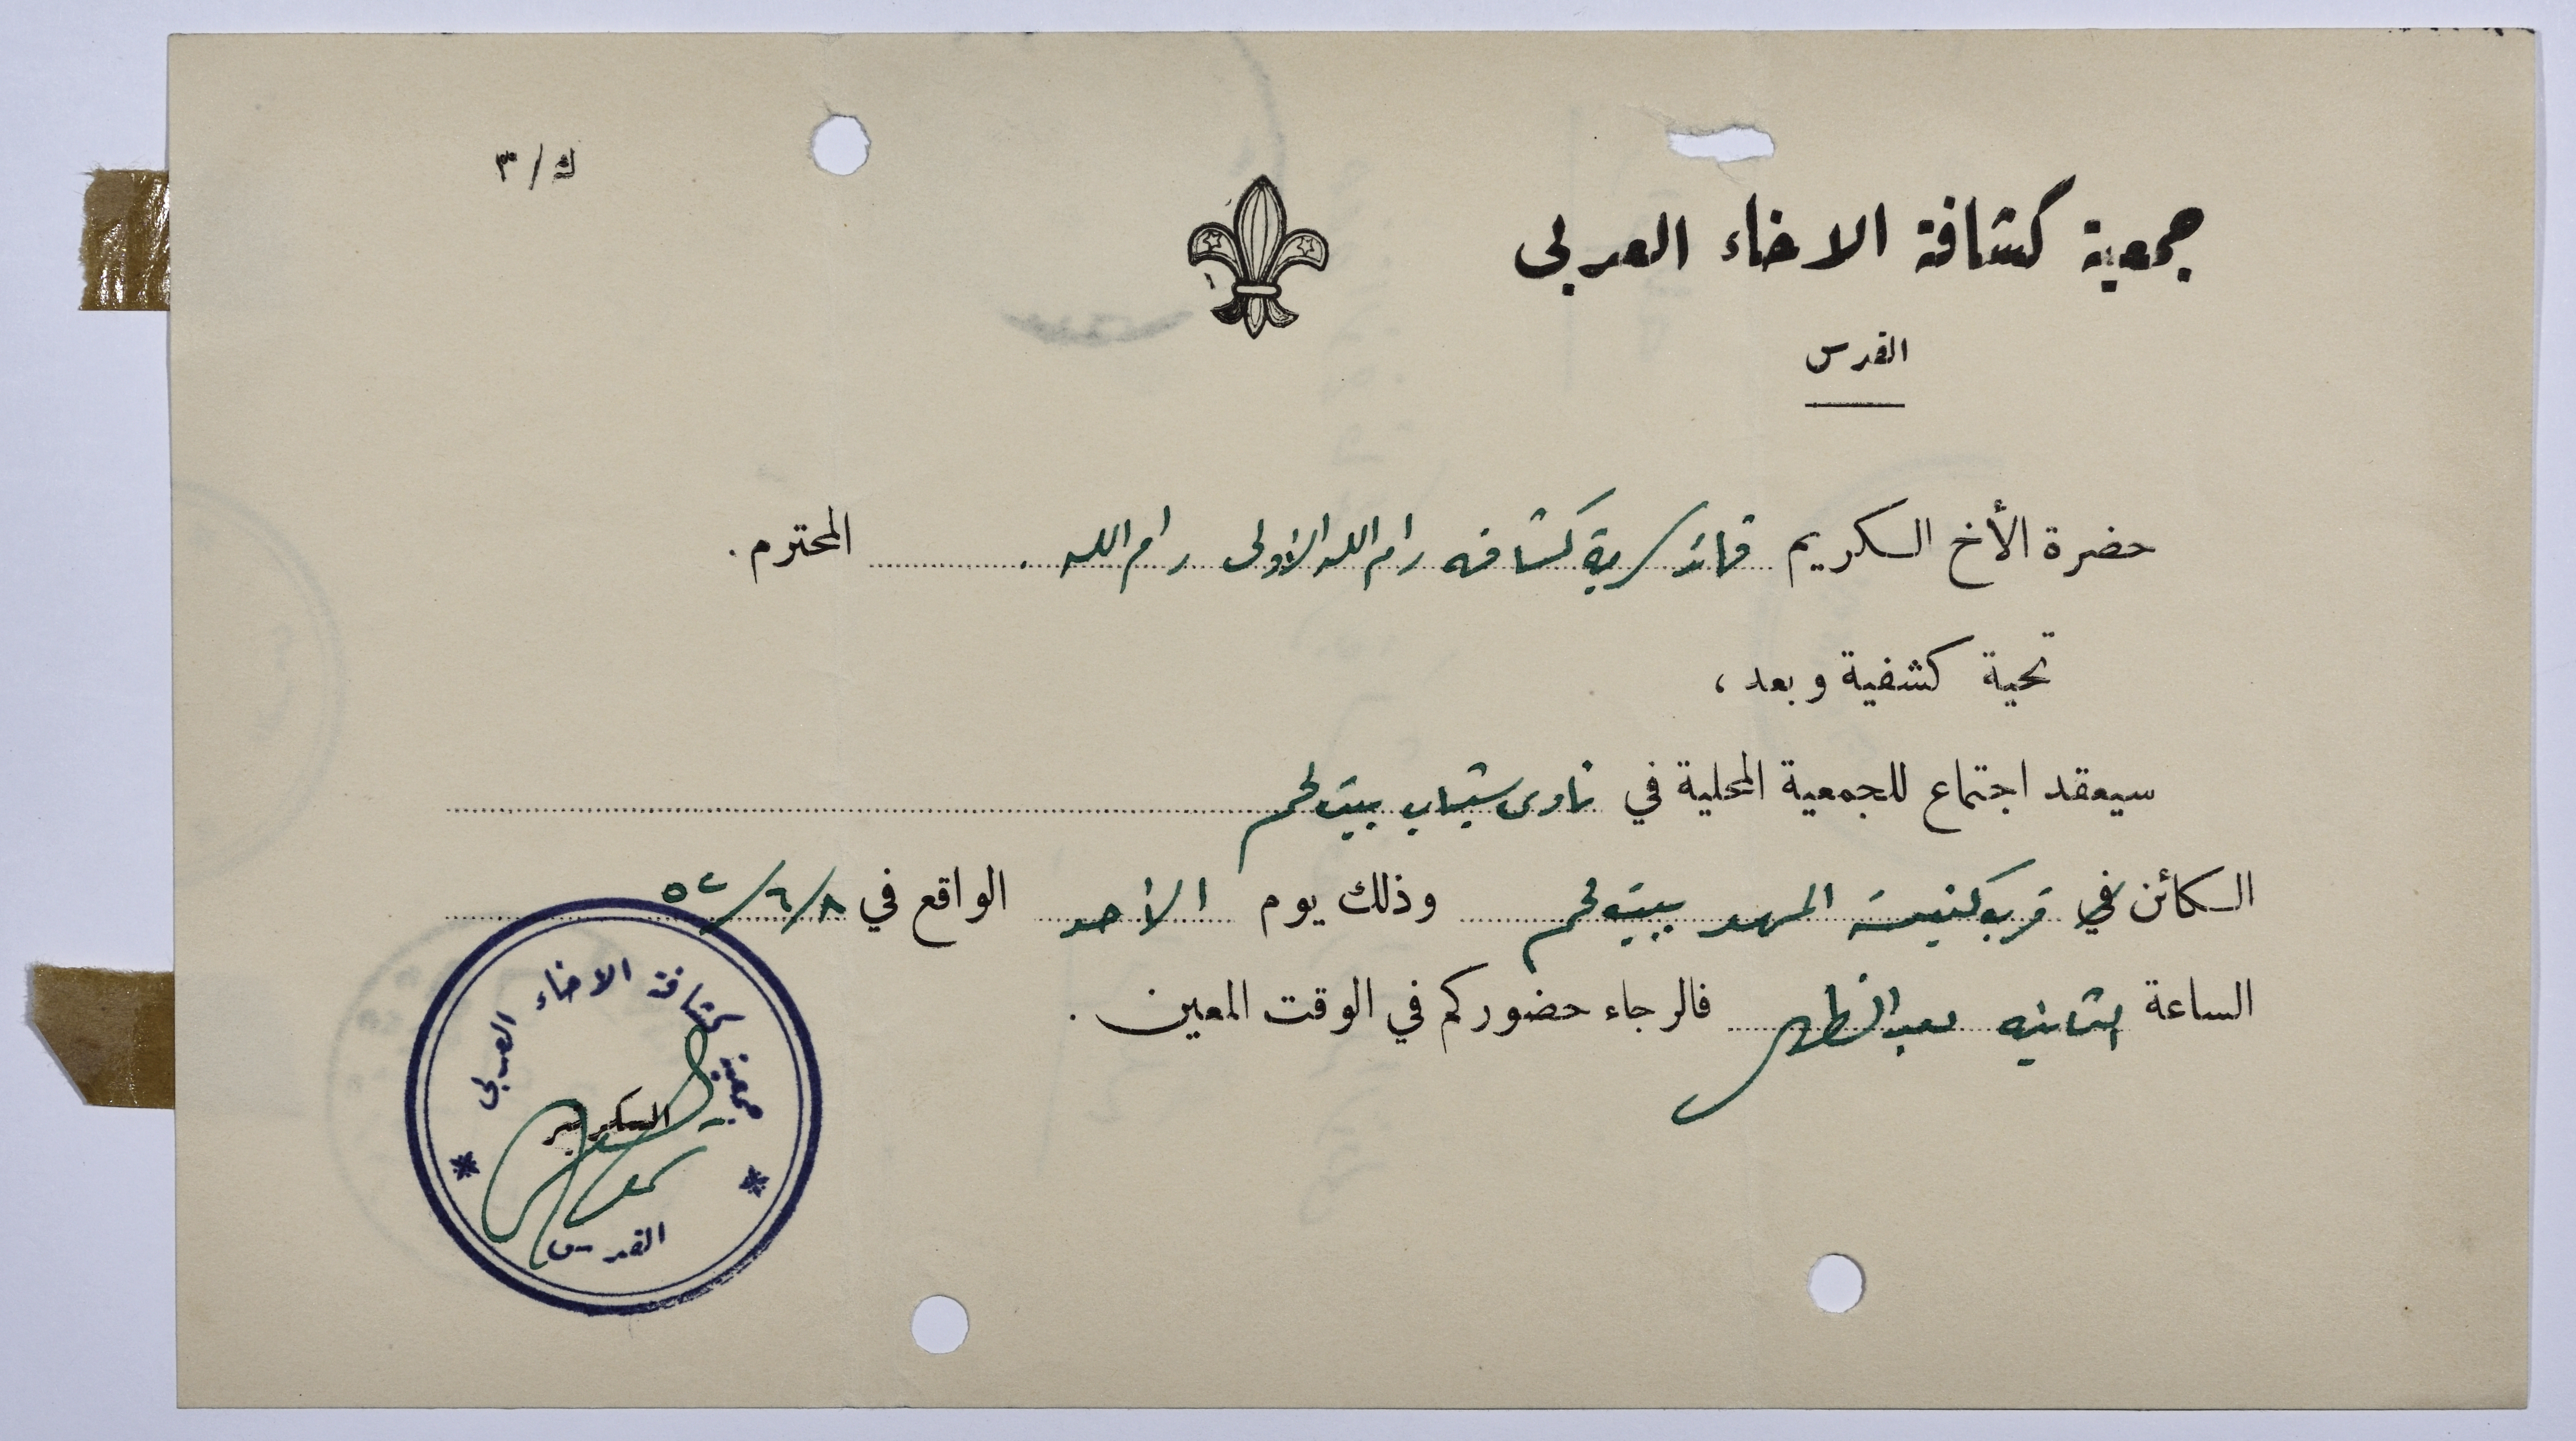 ك/٣
جمعية كشافة الاخاء العربي
القدس
حضرة الأخ الكريم قائد سرية كشافه رام الله الاولى رام الله . المحترم .
تحية كشفية وبعد ،
سيعقد اجتماع للجمعية المحلية في نادي شباب بيت لحم
الكائن في قرب كنيسة المهد ببيت لحم وذلك يوم الأحد الواقع في ٥٢/٦/٨
الساعة الثانيه بعد الظهر فالرجاء حضوركم في الوقت المعين .
جمعية كشافة الاخاء العربي
السكرتير
القدس